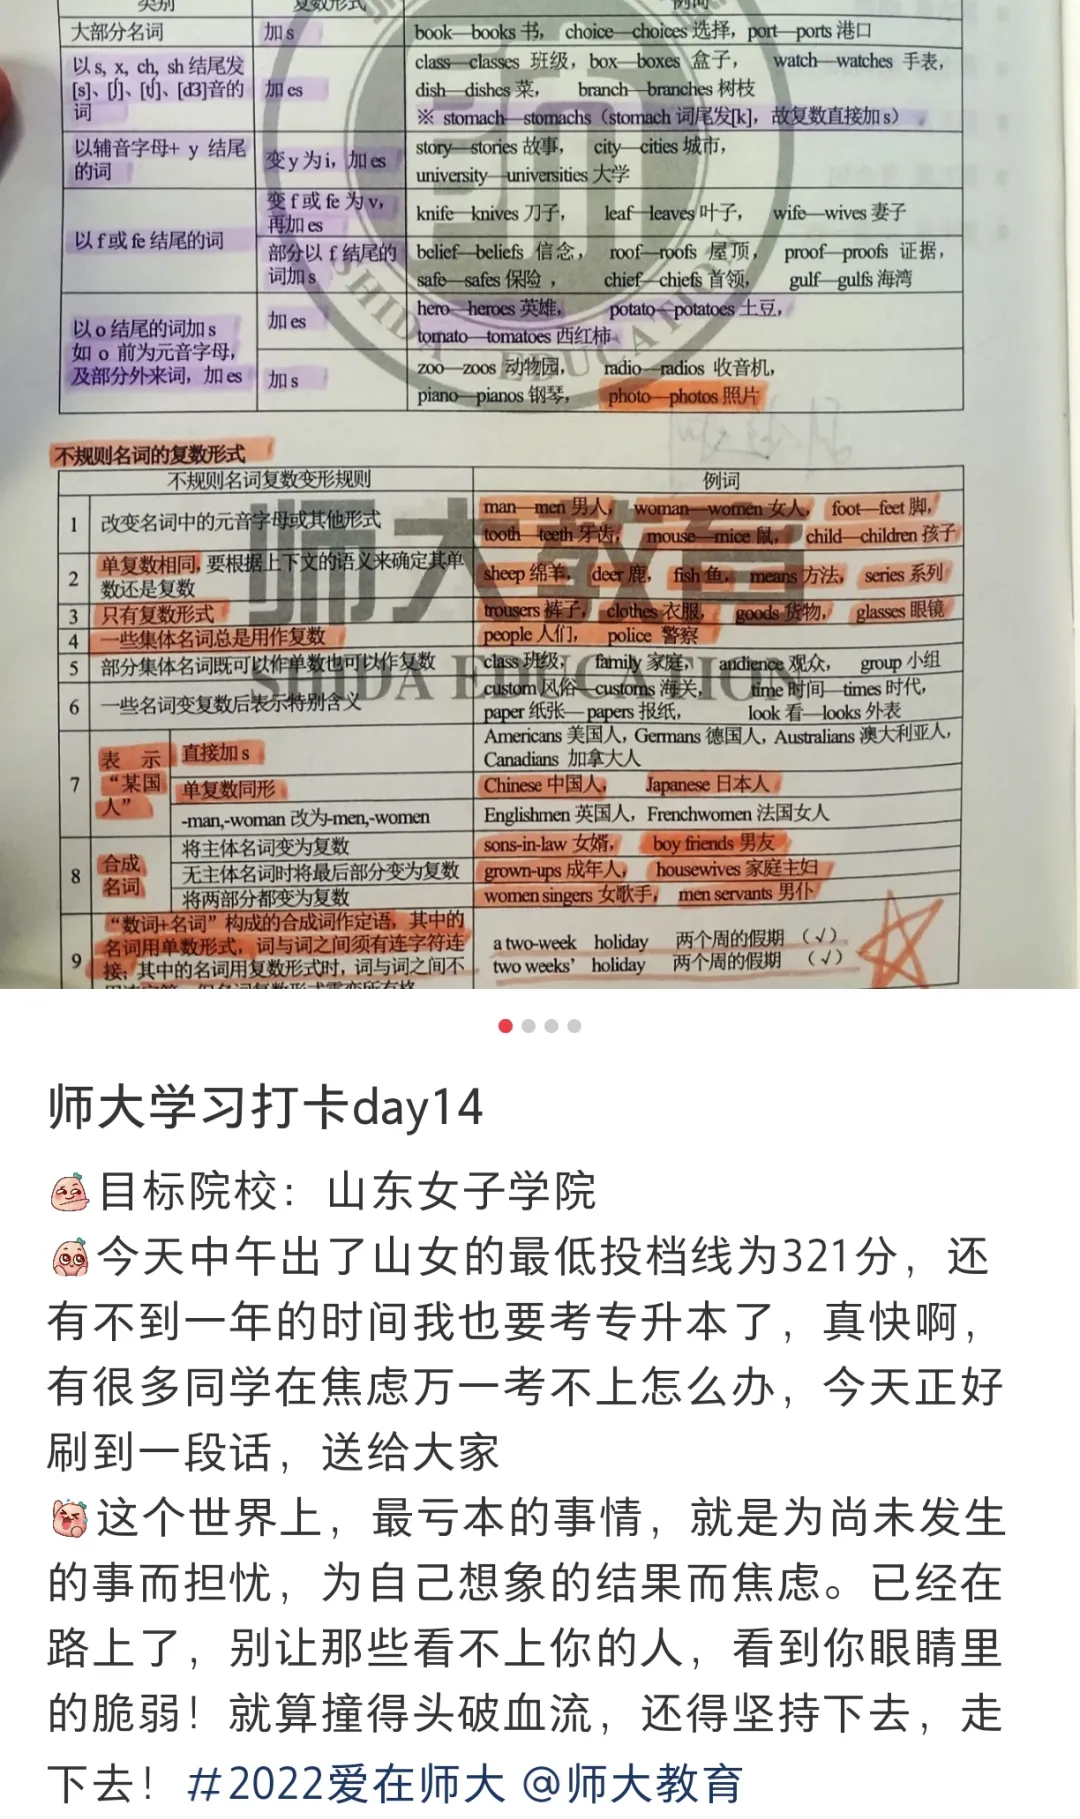 类别 复数形式 例词
大部分名词 加 s book—books 书， choice—choices 选择，port—ports 港口
以 s, x, ch, sh 结尾发 [s]、[ʃ]、[tʃ]、[dʒ]音的词 加 es class—classes 班级，box—boxes 盒子， watch—watches 手表，
dish—dishes 菜， branch—branches 树枝
※ stomach—stomachs（stomach 词尾发[k]，故复数直接加 s）
以辅音字母+ y 结尾的词 变 y 为 i，加 es story—stories 故事， city—cities 城市，
university—universities 大学
以 f 或 fe 结尾的词 变 f 或 fe 为 v，再加 es knife—knives 刀子， leaf—leaves 叶子， wife—wives 妻子
部分以 f 结尾的词加 s belief—beliefs 信念， roof—roofs 屋顶， proof—proofs 证据，
safe—safes 保险 ， chief—chiefs 首领， gulf—gulfs 海湾
以 o 结尾的词加 s
如 o 前为元音字母，
及部分外来词，加 es
加 es hero—heroes 英雄， potato—potatoes 土豆，
tomato—tomatoes 西红柿
加 s zoo—zoos 动物园， radio—radios 收音机，
piano—pianos 钢琴， photo—photos 照片
SHIDA EDUCATION
不规则名词的复数形式
不规则名词复数变形规则 例词
1 改变名词中的元音字母或其他形式 man—men 男人， woman—women 女人， foot—feet 脚，
tooth—teeth 牙齿， mouse—mice 鼠， child—children 孩子
2 单复数相同，要根据上下文的语义来确定其单数还是复数 sheep 绵羊， deer 鹿， fish 鱼， means 方法， series 系列
3 只有复数形式 trousers 裤子， clothes 衣服， goods 货物， glasses 眼镜
4 一些集体名词总是用作复数 people 人们， police 警察
5 部分集体名词既可以作单数也可以作复数 class 班级， family 家庭， audience 观众， group 小组
6 一些名词变复数后表示特别含义 custom 风俗—customs 海关， time 时间—times 时代，
paper 纸张— papers 报纸， look 看—looks 外表
师大教育
SHIDA EDUCATION
7 表 示“某国人” 直接加 s Americans 美国人，Germans 德国人，Australians 澳大利亚人，
Canadians 加拿大人
单复数同形 Chinese 中国人， Japanese 日本人
-man,-woman 改为-men,-women Englishmen 英国人，Frenchwomen 法国女人
8 合成名词 将主体名词变为复数 sons-in-law 女婿， boy friends 男友
无主体名词时将最后部分变为复数 grown-ups 成年人， housewives 家庭主妇
将两部分都变为复数 women singers 女歌手， men servants 男仆
9 “数词+名词”构成的合成词作定语，其中的
名词用单数形式，词与词之间须有连字符连
接；其中的名词用复数形式时，词与词之间不
a two-week holiday 两个周的假期 （√）
two weeks’ holiday 两个周的假期 （√）
师大学习打卡day14
目标院校：山东女子学院
今天中午出了山女的最低投档线为321分，还
有不到一年的时间我也要考专升本了，真快啊，
有很多同学在焦虑万一考不上怎么办，今天正好
刷到一段话，送给大家
这个世界上，最亏本的事情，就是为尚未发生
的事而担忧，为自己想象的结果而焦虑。已经在
路上了，别让那些看不上你的人，看到你眼睛里
的脆弱！就算撞得头破血流，还得坚持下去，走
下去！#2022爱在师大 @师大教育